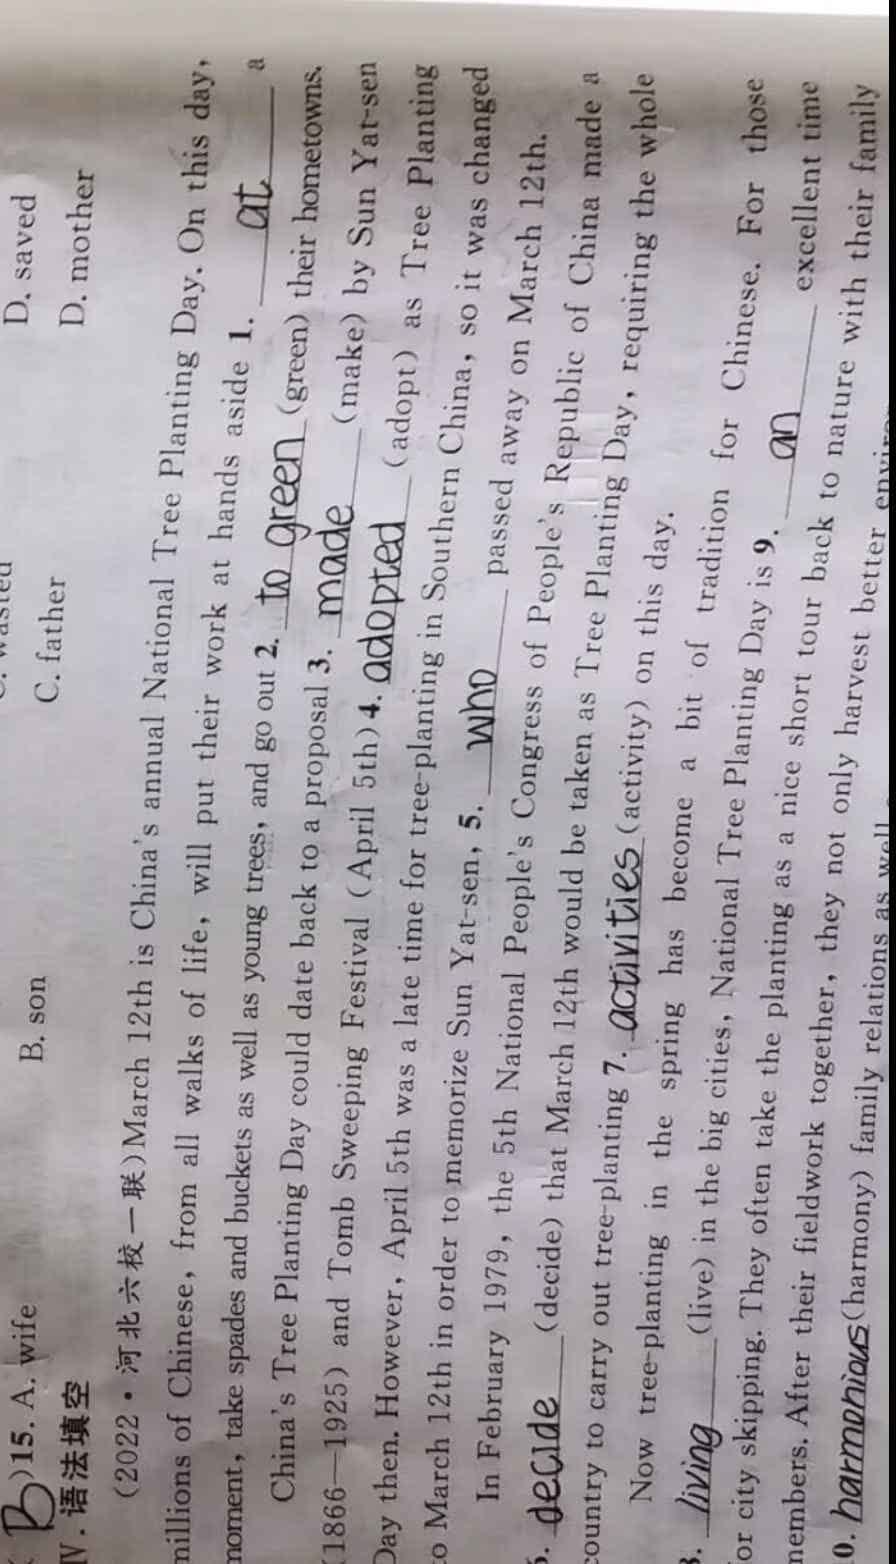 D. saved
B )15. A. wife B. son C. father D. mother
Ⅳ. 语法填空
(2022·河北六校一联)March 12th is China's annual National Tree Planting Day. On this day,
millions of Chinese, from all walks of life, will put their work at hands aside 1. at a
moment, take spades and buckets as well as young trees, and go out 2. to green (green) their hometowns.
China's Tree Planting Day could date back to a proposal 3. made (make) by Sun Yat-sen
(1866—1925) and Tomb Sweeping Festival (April 5th) 4. adopted (adopt) as Tree Planting
Day then. However, April 5th was a late time for tree-planting in Southern China, so it was changed
to March 12th in order to memorize Sun Yat-sen, 5. who passed away on March 12th.
In February 1979, the 5th National People's Congress of People's Republic of China made a
6. decide (decide) that March 12th would be taken as Tree Planting Day, requiring the whole
country to carry out tree-planting 7. activities (activity) on this day.
Now tree-planting in the spring has become a bit of tradition for Chinese. For those
8. living (live) in the big cities, National Tree Planting Day is 9. an excellent time
for city skipping. They often take the planting as a nice short tour back to nature with their family
members. After their fieldwork together, they not only harvest better
10. harmonious (harmony) family relations as well